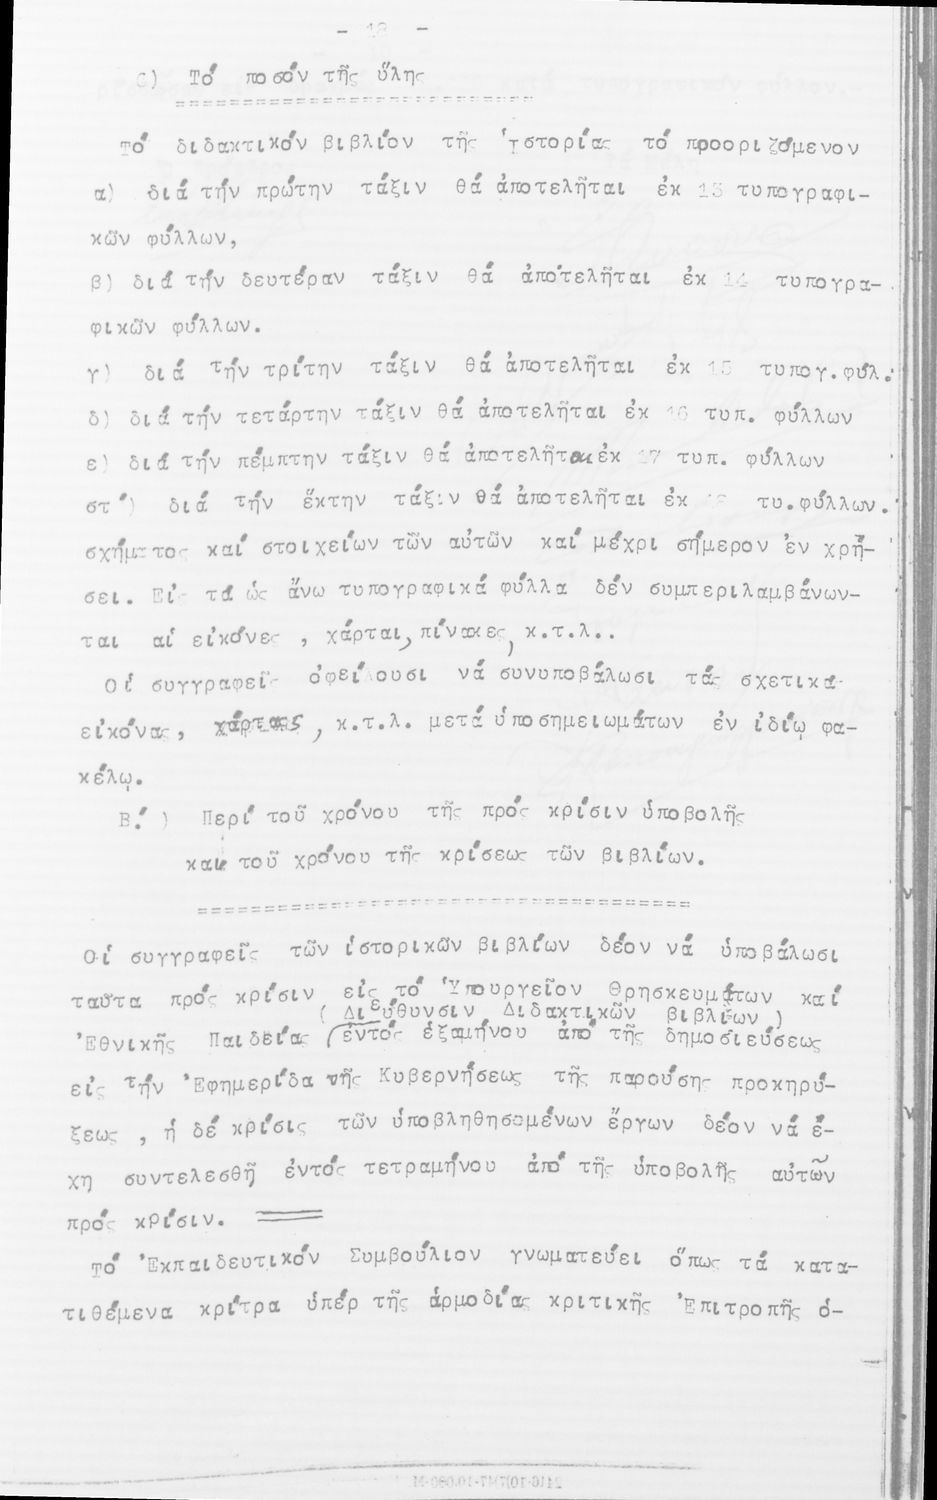 - 18 -
C) Τό ποσόν τῆς ὕλης
==========================
Τό διδακτικόν βιβλίον τῆς Ἱστορίας τό προοριζόμενον
α) διά τήν πρώτην τάξιν θά ἀποτελῆται ἐκ 13 τυπογραφι-
κῶν φύλλων,
β) διά τήν δευτέραν τάξιν θά ἀποτελῆται ἐκ 14 τυπογρα-
φικῶν φύλλων.
γ) διά τήν τρίτην τάξιν θά ἀποτελῆται ἐκ 15 τυπογ.φύλ.
δ) διά τήν τετάρτην τάξιν θά ἀποτελῆται ἐκ 16 τυπ. φύλλων
ε) διά τήν πέμπτην τάξιν θά ἀποτελῆται ἐκ 17 τυπ. φύλλων
στ´) διά τήν ἕκτην τάξιν θά ἀποτελῆται ἐκ τυ.φύλλων.
σχήματος καί στοιχείων τῶν αὐτῶν καί μέχρι σήμερον ἐν χρή-
σει. Εἰς τά ὡς ἄνω τυπογραφικά φύλλα δέν συμπεριλαμβάνων-
ται αἱ εἰκόνες , χάρται, πίνακες, κ.τ.λ..
Οἱ συγγραφεῖς ὀφείλουσι νά συνυποβάλωσι τάς σχετικά
εἰκόνας, χάρτας, κ.τ.λ. μετά ὑποσημειωμάτων ἐν ἰδίῳ φα-
κέλῳ.
Β.´) Περί τοῦ χρόνου τῆς πρός κρίσιν ὑποβολῆς
καί τοῦ χρόνου τῆς κρίσεως τῶν βιβλίων.
=====================================
Οἱ συγγραφεῖς τῶν ἱστορικῶν βιβλίων δέον νά ὑποβάλωσι
ταῦτα πρός κρίσιν εἰς τό Ὑπουργεῖον Θρησκευμάτων καί
( Διεύθυνσιν Διδακτικῶν βιβλίων )
Ἐθνικῆς Παιδείας ἐντός ἑξαμήνου ἀπό τῆς δημοσιεύσεως
εἰς τήν Ἐφημερίδα τῆς Κυβερνήσεως τῆς παρούσης προκηρύ-
ξεως , ἡ δέ κρίσις τῶν ὑποβληθησομένων ἔργων δέον νά ἔ-
χη συντελεσθῆ ἐντός τετραμήνου ἀπό τῆς ὑποβολῆς αὐτῶν
πρός κρίσιν.
Τό Ἐκπαιδευτικόν Συμβούλιον γνωματεύει ὅπως τά κατα-
τιθέμενα κρίτρα ὑπέρ τῆς ἁρμοδίας κριτικῆς Ἐπιτροπῆς ὁ-